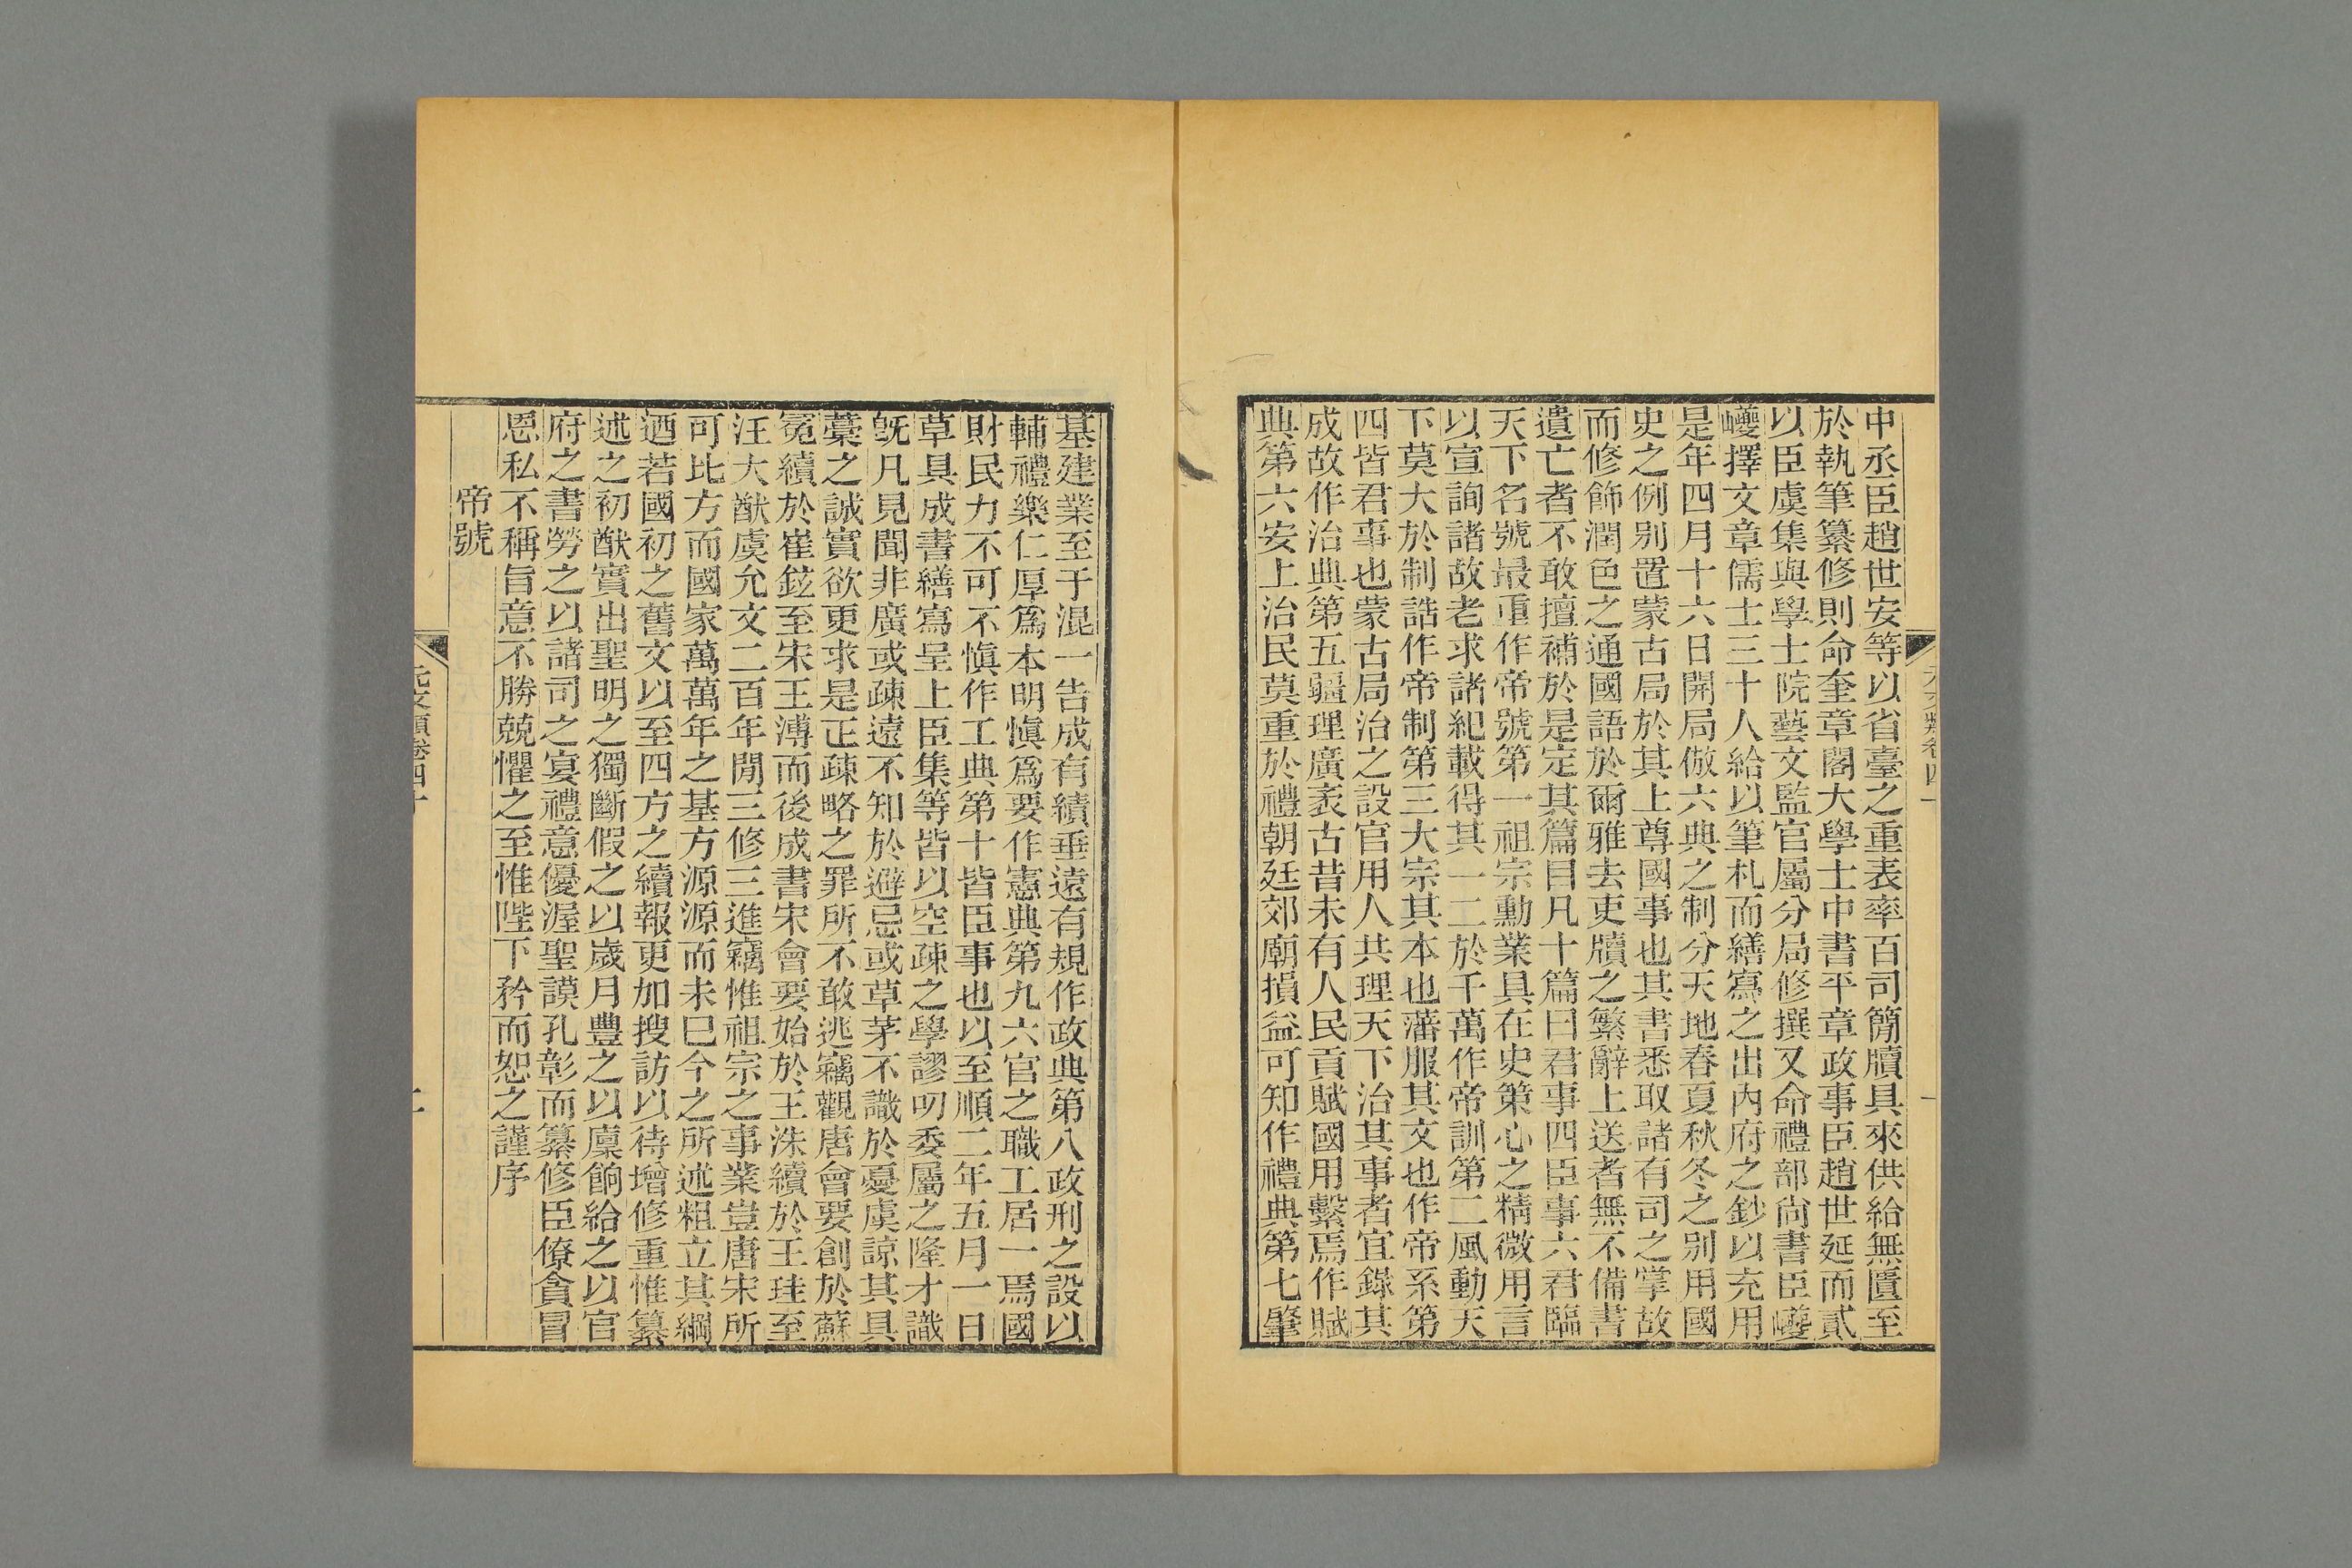 中丞臣趙世安等以省臺之重表率百司簡牘具來供給無匱至
於執筆纂修則命奎章閣大學士中書平章政事臣趙世延而貳
以臣虞集與學士院藝文監官屬分局修撰又命禮部尙書臣巙
巙擇文章儒士三十人給以筆札而繕寫之出內府之鈔以充用
是年四月十六日開局倣六典之制分天地春夏秋冬之別用國
史之例别置蒙古局於其上尊國事也其書悉取諸有司之掌故
而修飾潤色之通國語於爾雅去吏牘之繁辭上送者無不備書
遺亡者不敢擅補於是定其篇目凡十篇曰君事四臣事六君臨
天下名號最重作帝號第一祖宗勳業具在史策心之精微用言
以宣詢諸故老求諸紀載得其一二於千萬作帝訓第二風動天
下莫大於制誥作帝制第三大宗其本也藩服其文也作帝系第
四皆君事也蒙古局治之設官用人共理天下治其事者宜錄其
成故作治典第五疆理廣袤古昔未有人民貢賦國用繫焉作賦
典第六安上治民莫重於禮朝廷郊廟損益可知作禮典第七肇
基建業至于混一告成有績垂遠有規作政典第八政刑之設以
輔禮樂仁厚爲本明愼爲要作憲典第九六官之職工居一焉國
財民力不可不愼作工典第十皆臣事也以至順二年五月一日
草具成書繕寫呈上臣集等皆以空疎之學謬叨委屬之隆才識
旣凡見聞非廣或疎遠不知於避忌或草茅不識於憂虞諒其具
藁之誠實欲更求是正疎略之罪所不敢逃竊觀唐會要創於蘇
冕續於崔鉉至宋王溥而後成書宋會要始於王洙續於王珪至
汪大猷虞允文二百年閒三修三進竊惟祖宗之事業豈唐宋所
可比方而國家萬萬年之基方源源而未巳今之所述粗立其綱
迺若國初之舊文以至四方之續報更加搜訪以待增修重惟纂
述之初猷實出聖明之獨斷假之以歲月豐之以廩餉給之以官
府之書勞之以諸司之宴禮意優渥聖謨孔彰而纂修臣僚貪冒
恩私不稱旨意不勝兢懼之至惟陛下矜而恕之謹序
帝號
元文類卷四十